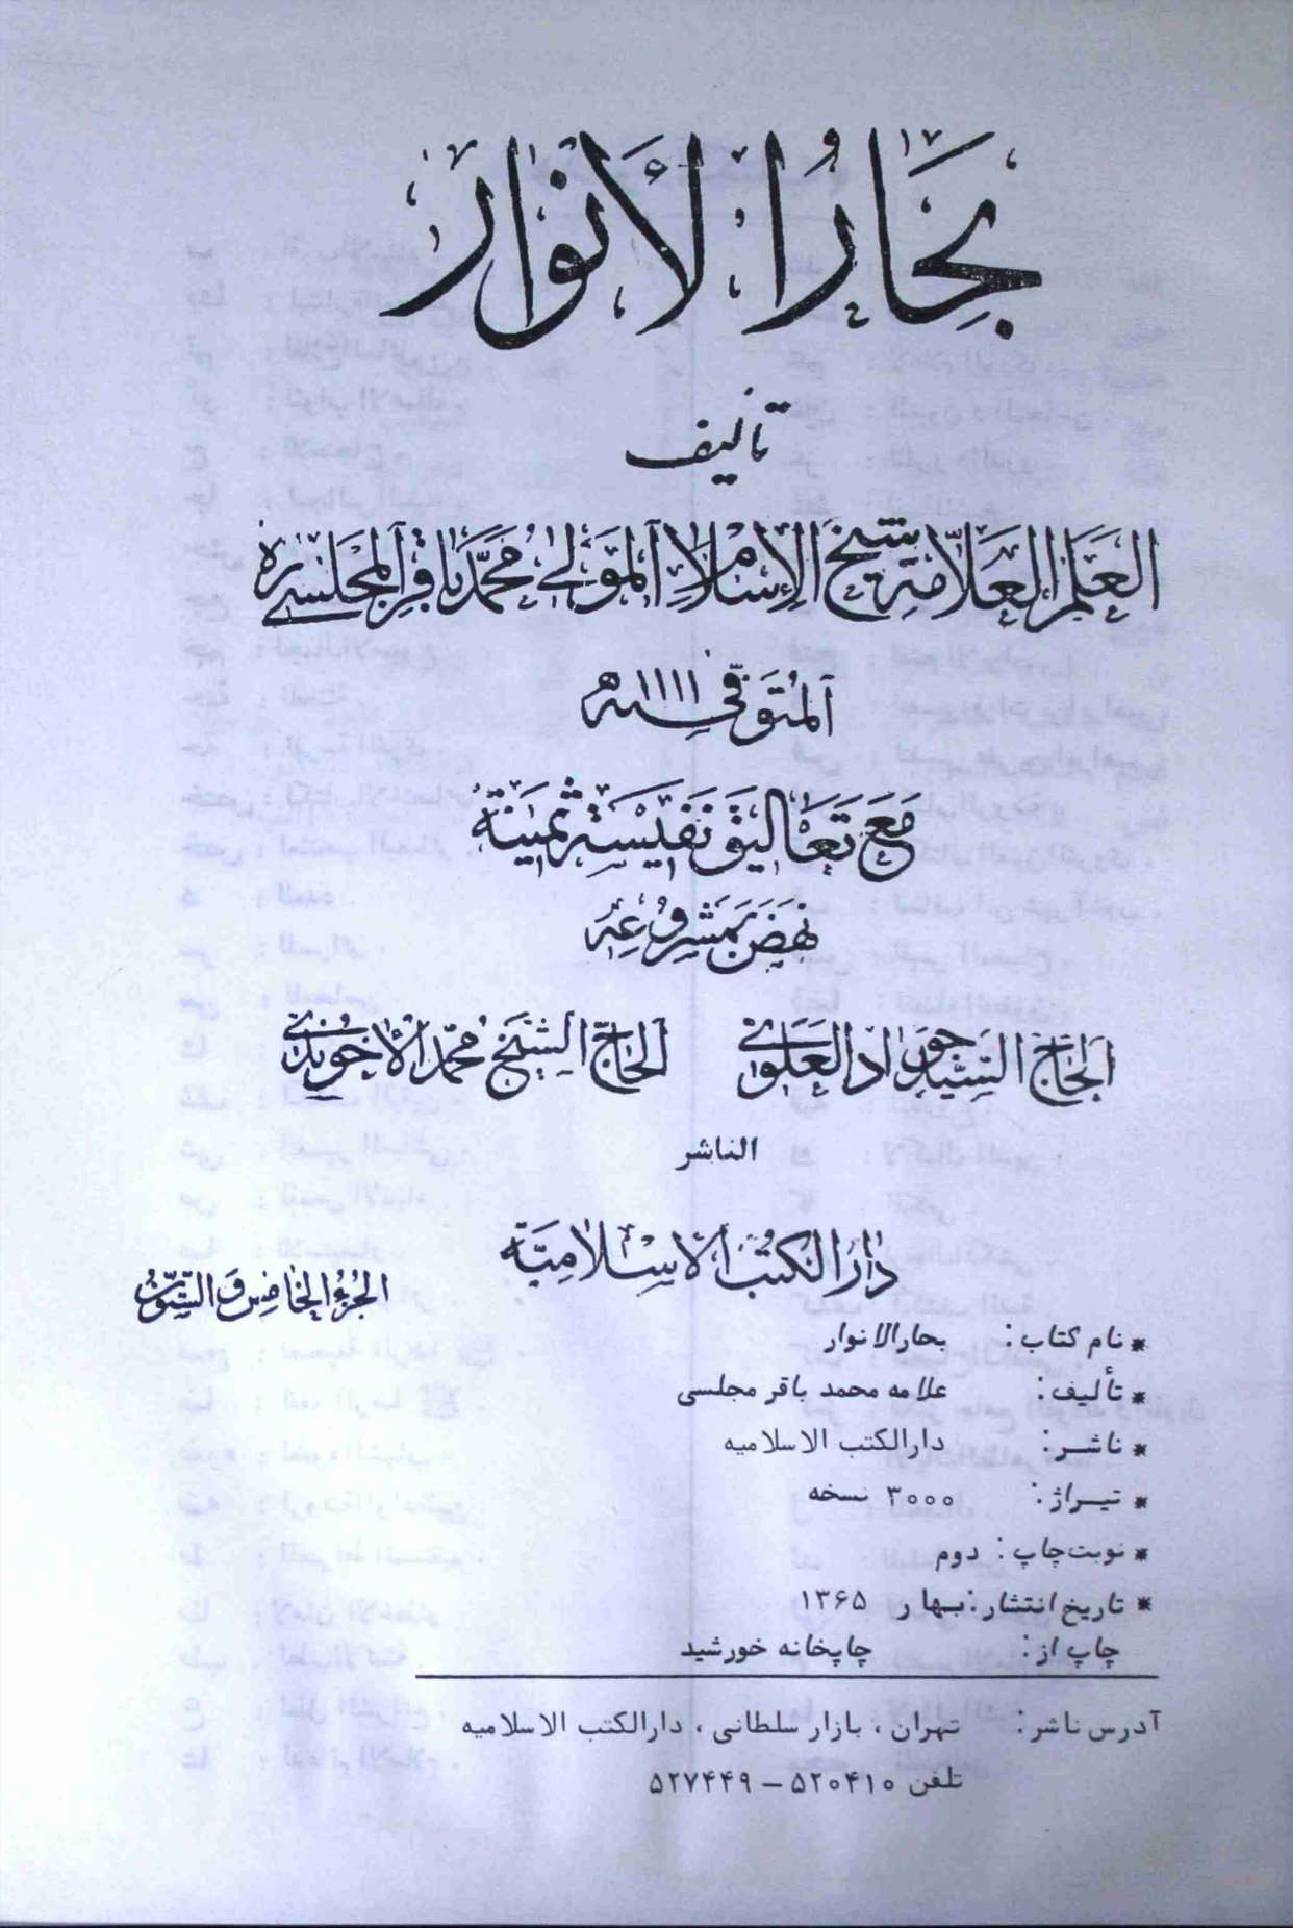 بِحَارُ الْأَنْوَارِ
تأليف
العَلَمِ العَلَّامَةِ شَيْخِ الْإِسْلَامِ الْمَوْلَى مُحَمَّد بَاقِر الْمَجْلِسِي ره
الْمُتَوَفّى سنة ١١١١ هـ
مَعَ تَعَالِيقَ نَفِيسَةٍ ثَمِينَةٍ
نَهَضَ بِمَشْرُوعِهِ
الْحَاجّ السَّيّد جَوَاد الْعَلَوِي    الْحَاجّ الشَّيْخ مُحَمَّد الْآخُونْدِي
الناشر
دَارُ الْكُتُبِ الْإِسْلَامِيَّة
الْجُزْءُ الْخَامِسُ وَ السِّتُّونَ
* نام کتاب: بحارالانوار
* تألیف: علامه محمد باقر مجلسی
* ناشر: دارالکتب الاسلامیه
* تیراژ: ۳۰۰۰ نسخه
* نوبت‌چاپ: دوم
* تاریخ انتشار: بهار ۱۳۶۵
چاپ از: چاپخانه خورشید
آدرس ناشر: تهران، بازار سلطانی، دارالکتب الاسلامیه
تلفن ۵۲۰۴۱۰ – ۵۲۷۴۴۹